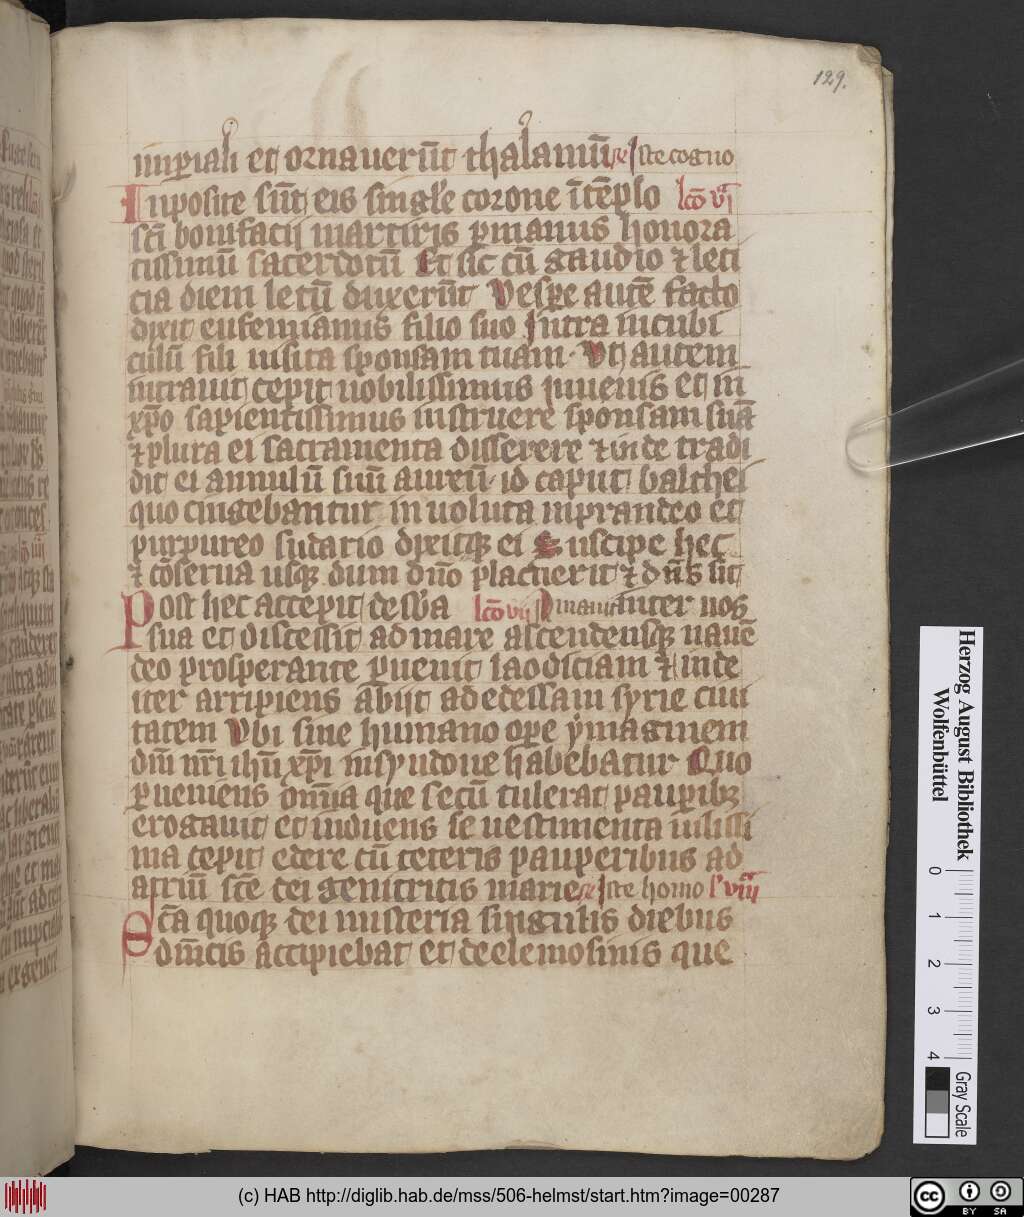 129.
imp̲iali et ornauerūt thalamū Iste cogno
Inposite sūt eis singl'e corone ī tēplo lc̄o vi
sc̄i bonifacij martiris p̲manus honora
tissimū sacerdotū Et sic cū gaudio ⁊ leti
cia diem letū duxerūt Vesp̲e autē facto
dixit eufemianus filio suo Intra in cubi
culū fili uisita sponsam tuam · Vt autem
intrauit cepit nobilissimus iuuenis et in
xp̄o sapientissimus instruere sponsam suā
⁊ plura ei sacramenta disserere ⁊ inde tradi
dit ei annulū suū aureū · id caput balthei
quo cingebantur inuoluta in prandeo et
purpureo sudario dixitq; ei Suscipe hec
⁊ cōserua usq; dum dn̄o placuerit ⁊ dn̄s sit
Post hec accepit de sb̄a lc̄o vii inter nos
sua et discessit ad mare ascendensq; nauē
deo prosperante p̲uenit laodiciam ⁊ inde
iter arripiens abijt ad edessam syrie ciui
tatem Vbi sine humano op̲e ymaginem
dn̄i nr̄i ihū xp̄i in syndone habebatur Quo
p̲ueniens om̄ia que secū tulerat paup̲ib;
erogauit et induens se uestimenta uilissi
ma cepit sedere cū ceteris pauperibus ad
atriū sc̄e dei genitricis marie Iste homo l' viii
Sc̄a quoq; dei misteria singulis diebus
dn̄icis accipiebat et de elemosinis que
Herzog August Bibliothek
Wolfenbüttel
0 1 2 3 4
Gray Scale
(c) HAB http://diglib.hab.de/mss/506-helmst/start.htm?image=00287
cc BY SA